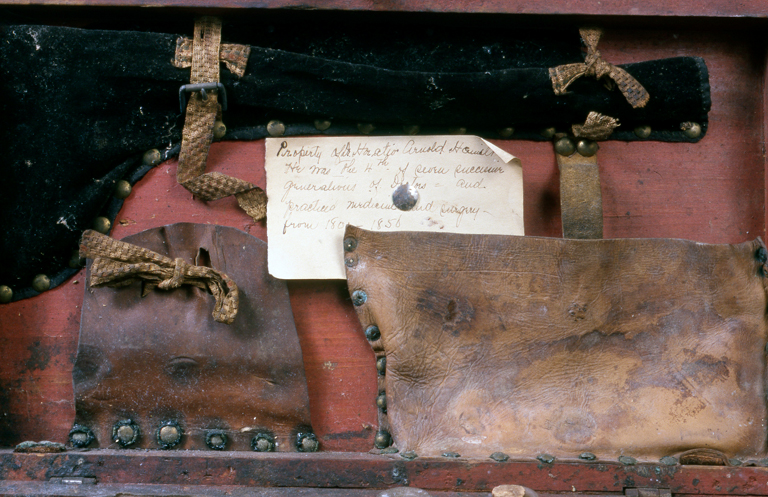 Property Dr Horatio Arnold Hamil
He was the 4th of seven successive
generations of Doctors = and
practiced medicine and surgery -
from 180 1856